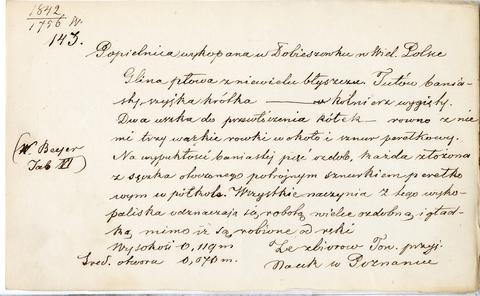 1842
1756 W.
143.
Popielnica wykopana w Dobieszewku w Wiel. Polsce
Glina płowa z niewielu błyszczu Tułów bania-
sty, szyjka krótka — kołnierz wygięty.
Dwa uszka do przewleczenia kółek — równo z nie-
mi trzy wązkie rowki w około i sznur perełkowy.
(W Beyer
Tab XI)
Na wypukłości baniastej pięć ozdob, każda złożona
z sęczka otoczonego potrójnym sznurkiem perełko
wym w półkole. Wszystkie naczynia z tego wyko-
paliska odznaczają się robotą wielce ozdobną i gład-
ką, mimo iż są robione od ręki
Wysokość 0,119 m
Ze zbiorów Tow. przyj.
Śred. otworu 0,070 m.
Nauk w Poznaniu